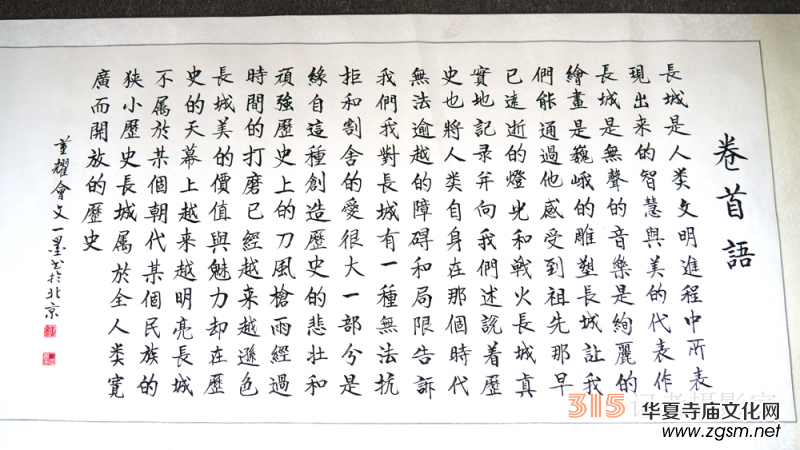 卷首語
長城是人类文明進程中所表
現出来的智慧與美的代表作
長城是無聲的音樂是絢麗的
繪畫是巍峨的雕塑長城讓我
們能通過他感受到祖先那早
已遠逝的燈光和戰火長城真
實地記录并向我們述説着歷
史也將人类自身在那個時代
無法逾越的障碍和局限告訴
我們我對長城有一種無法抗
拒和割舍的愛很大一部分是
緣自這種創造歷史的悲壯和
頑強歷史上的刀風槍雨經過
時間的打磨已經越来越遜色
長城美的價值與魅力却在歷
史的天幕上越来越明亮長城
不属於某個朝代某個民族的
狹小歷史長城属於全人类寬
廣而開放的歷史
董耀會文一墨书於北京
315记者摄影家
华夏寺庙文化网
www.zgsm.net